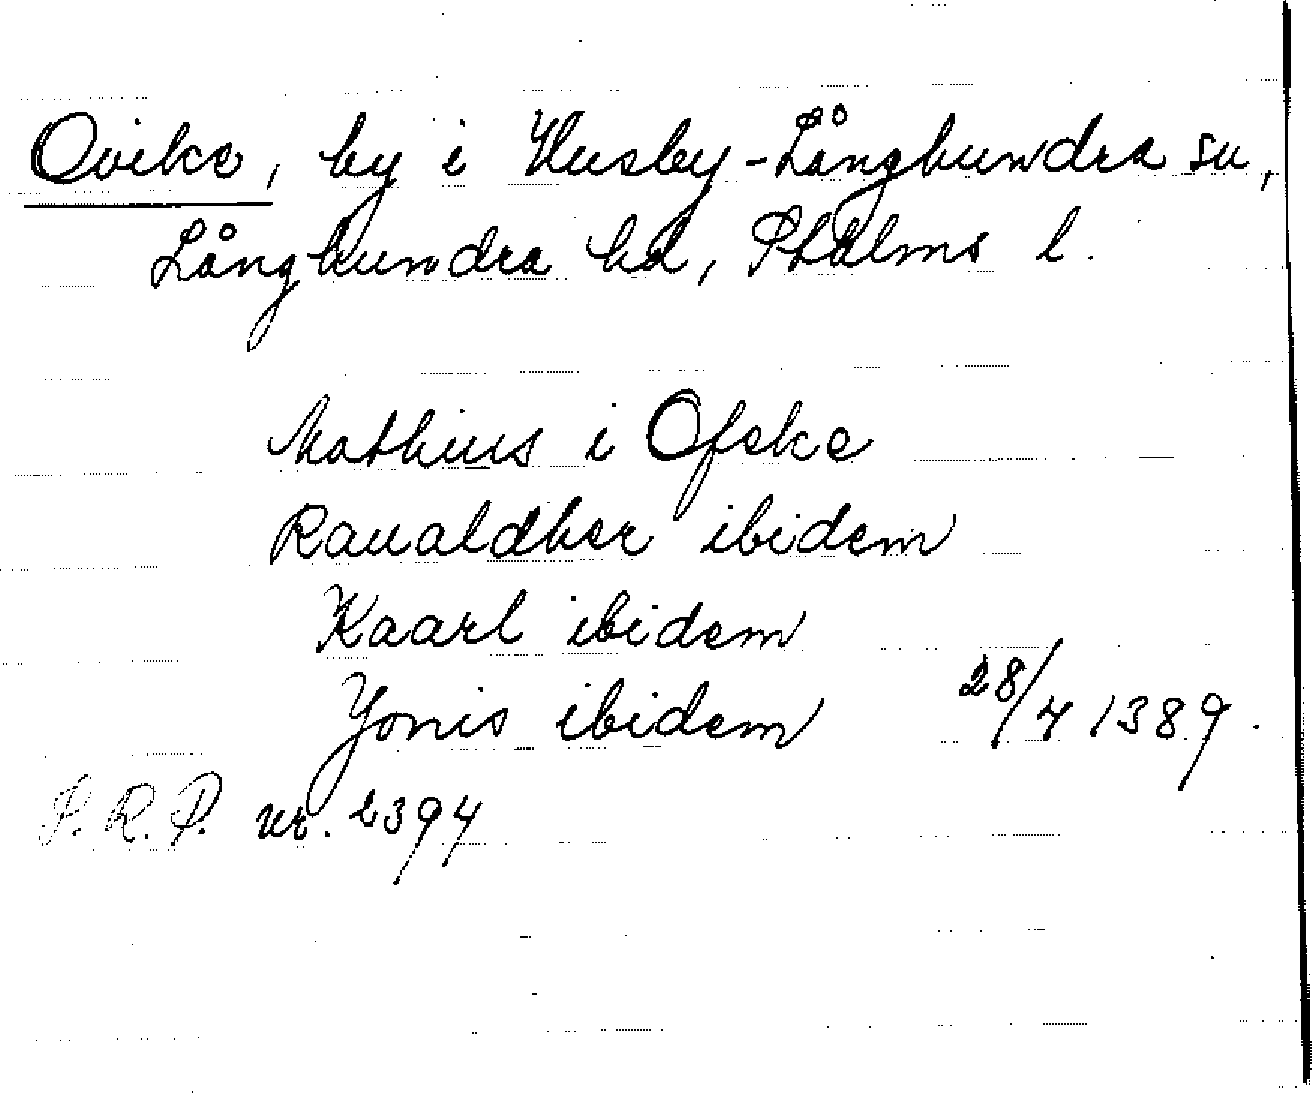 Ovike, by i Husby-Långhundra sn,
Långhundra hd, Sthlms l.
Mathius i Ofeke
Raualdher ibidem
Kaarl ibidem
Yonis ibidem 28/4 1389.
S.R.P. nr. 2394